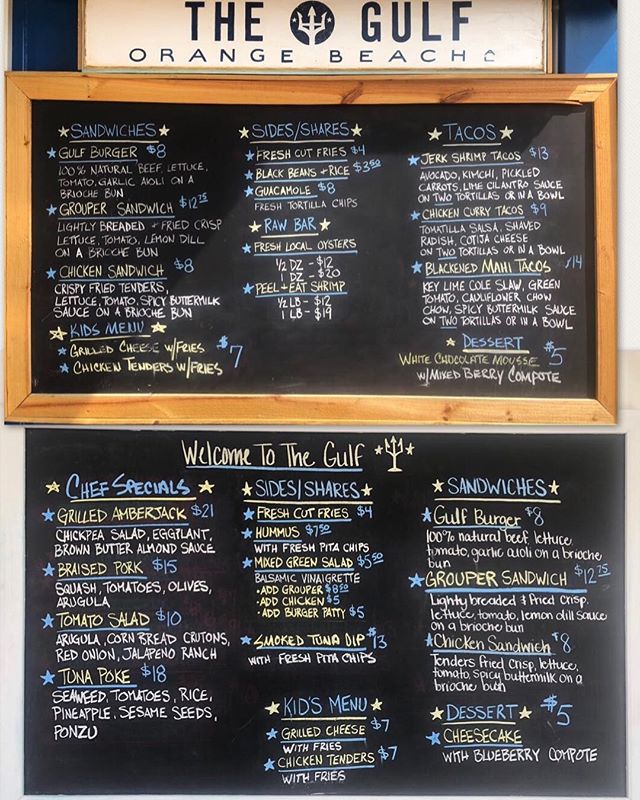 THE GULF
ORANGE BEACH
SANDWICHES
GULF BURGER $8
100% NATURAL BEEF, LETTUCE,
TOMATO, GARLIC AIOLI ON A
BRIOCHE BUN
GROUPER SANDWICH $12.75
LIGHTLY BREADED + FRIED CRISP
LETTUCE, TOMATO, LEMON DILL
ON A BRIOCHE BUN
CHICKEN SANDWICH $8
CRISPY FRIED TENDERS,
LETTUCE, TOMATO, SPICY BUTTERMILK
SAUCE ON A BRIOCHE BUN
KIDS MENU
GRILLED CHEESE W/FRIES
CHICKEN TENDERS W/FRIES
$7
SIDES/SHARES
FRESH CUT FRIES $4
BLACK BEANS + RICE $3.50
GUACAMOLE $8
FRESH TORTILLA CHIPS
RAW BAR
FRESH LOCAL OYSTERS
1/2 DZ - $12
1 DZ - $20
PEEL + EAT SHRIMP
1/2 LB - $12
1 LB - $19
TACOS
JERK SHRIMP TACOS $13
AVOCADO, KIMCHI, PICKLED
CARROTS, LIME CILANTRO SAUCE
ON TWO TORTILLAS OR IN A BOWL
CHICKEN CURRY TACOS $9
TOMATILLA SALSA, SHAVED
RADISH, COTIJA CHEESE
ON TWO TORTILLAS OR IN A BOWL
BLACKENED MAHI TACOS $14
KEY LIME COLE SLAW, GREEN
TOMATO, CAULIFLOWER CHOW
CHOW, SPICY BUTTERMILK SAUCE
ON TWO TORTILLAS OR IN A BOWL
DESSERT
WHITE CHOCOLATE MOUSSE
W/MIXED BERRY COMPOTE
$5
Welcome To The Gulf
CHEF SPECIALS
GRILLED AMBERJACK $21
CHICKPEA SALAD, EGGPLANT,
BROWN BUTTER ALMOND SAUCE
BRAISED PORK $15
SQUASH, TOMATOES, OLIVES,
ARUGULA
TOMATO SALAD $10
ARUGULA, CORN BREAD CRUTONS,
RED ONION, JALAPENO RANCH
TUNA POKE $18
SEAWEED, TOMATOES, RICE,
PINEAPPLE, SESAME SEEDS,
PONZU
SIDES/SHARES
FRESH CUT FRIES $4
HUMMUS $7.50
WITH FRESH PITA CHIPS
MIXED GREEN SALAD $5.50
BALSAMIC VINAIGRETTE
• ADD GROUPER $8.50
• ADD CHICKEN $5
• ADD BURGER PATTY $5
SMOKED TUNA DIP $13
WITH FRESH PITA CHIPS
KID'S MENU
GRILLED CHEESE $7
WITH FRIES
CHICKEN TENDERS $7
WITH FRIES
SANDWICHES
Gulf Burger $8
100% natural beef, lettuce
tomato, garlic aioli on a brioche
bun
GROUPER SANDWICH $12.75
Lighty breaded + fried crisp.
lettuce, tomato, lemon dill sauce
on a brioche bun
Chicken Sandwich $8
Tenders fried crisp, lettuce,
tomato, spicy buttermilk on a
brioche bun
DESSERT $5
CHEESECAKE
WITH BLUEBERRY COMPOTE